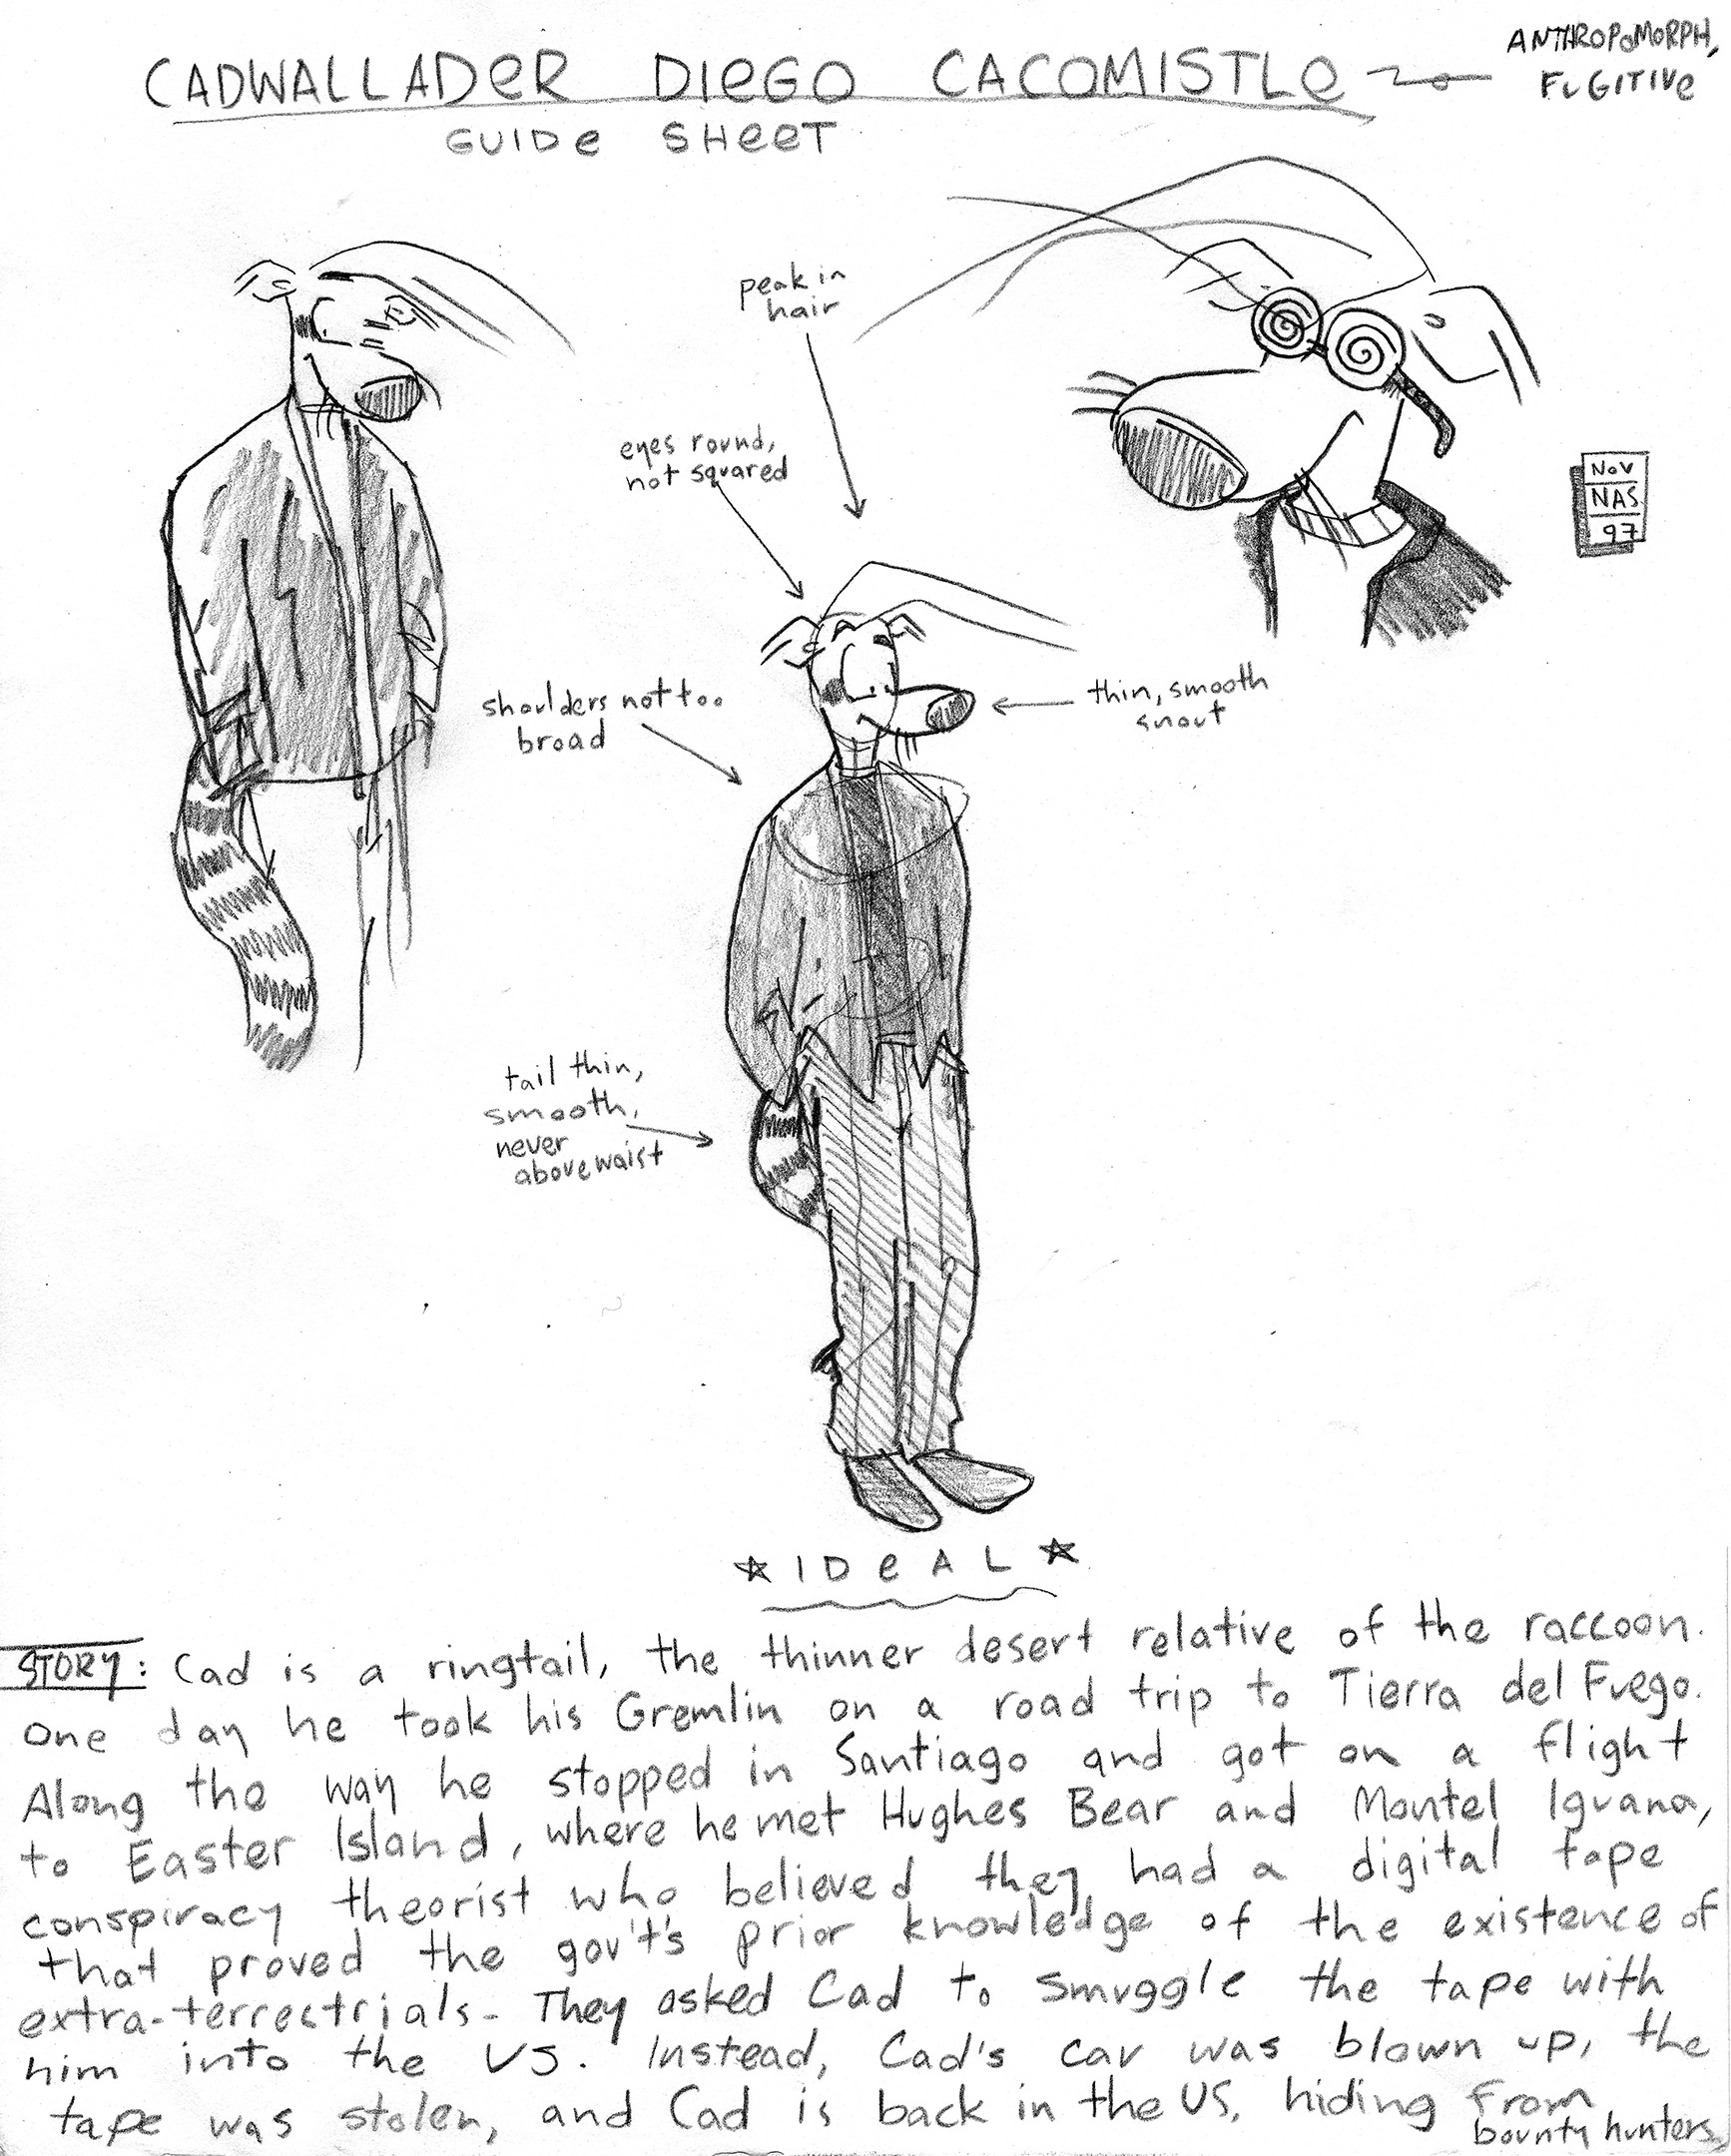 CADWALLADER DIEGO CACOMISTLE
ANTHROPOMORPH,
FUGITIVE
GUIDE SHEET
peak in
hair
eyes round,
not squared
NOV
NAS
97
shoulders not too
broad
thin, smooth
snout
tail thin,
smooth,
never
above waist
IDEAL
STORY: Cad is a ringtail, the thinner desert relative of the raccoon.
One day he took his Gremlin on a road trip to Tierra del Fuego.
Along the way he stopped in Santiago and got on a flight
to Easter Island, where he met Hughes Bear and Montel Iguana,
conspiracy theorist who believed they had a digital tape
that proved the gov't's prior knowledge of the existence of
extra-terrestrials. They asked Cad to smuggle the tape with
him into the US. Instead, Cad's car was blown up, the
tape was stolen, and Cad is back in the US, hiding from
bounty hunters.